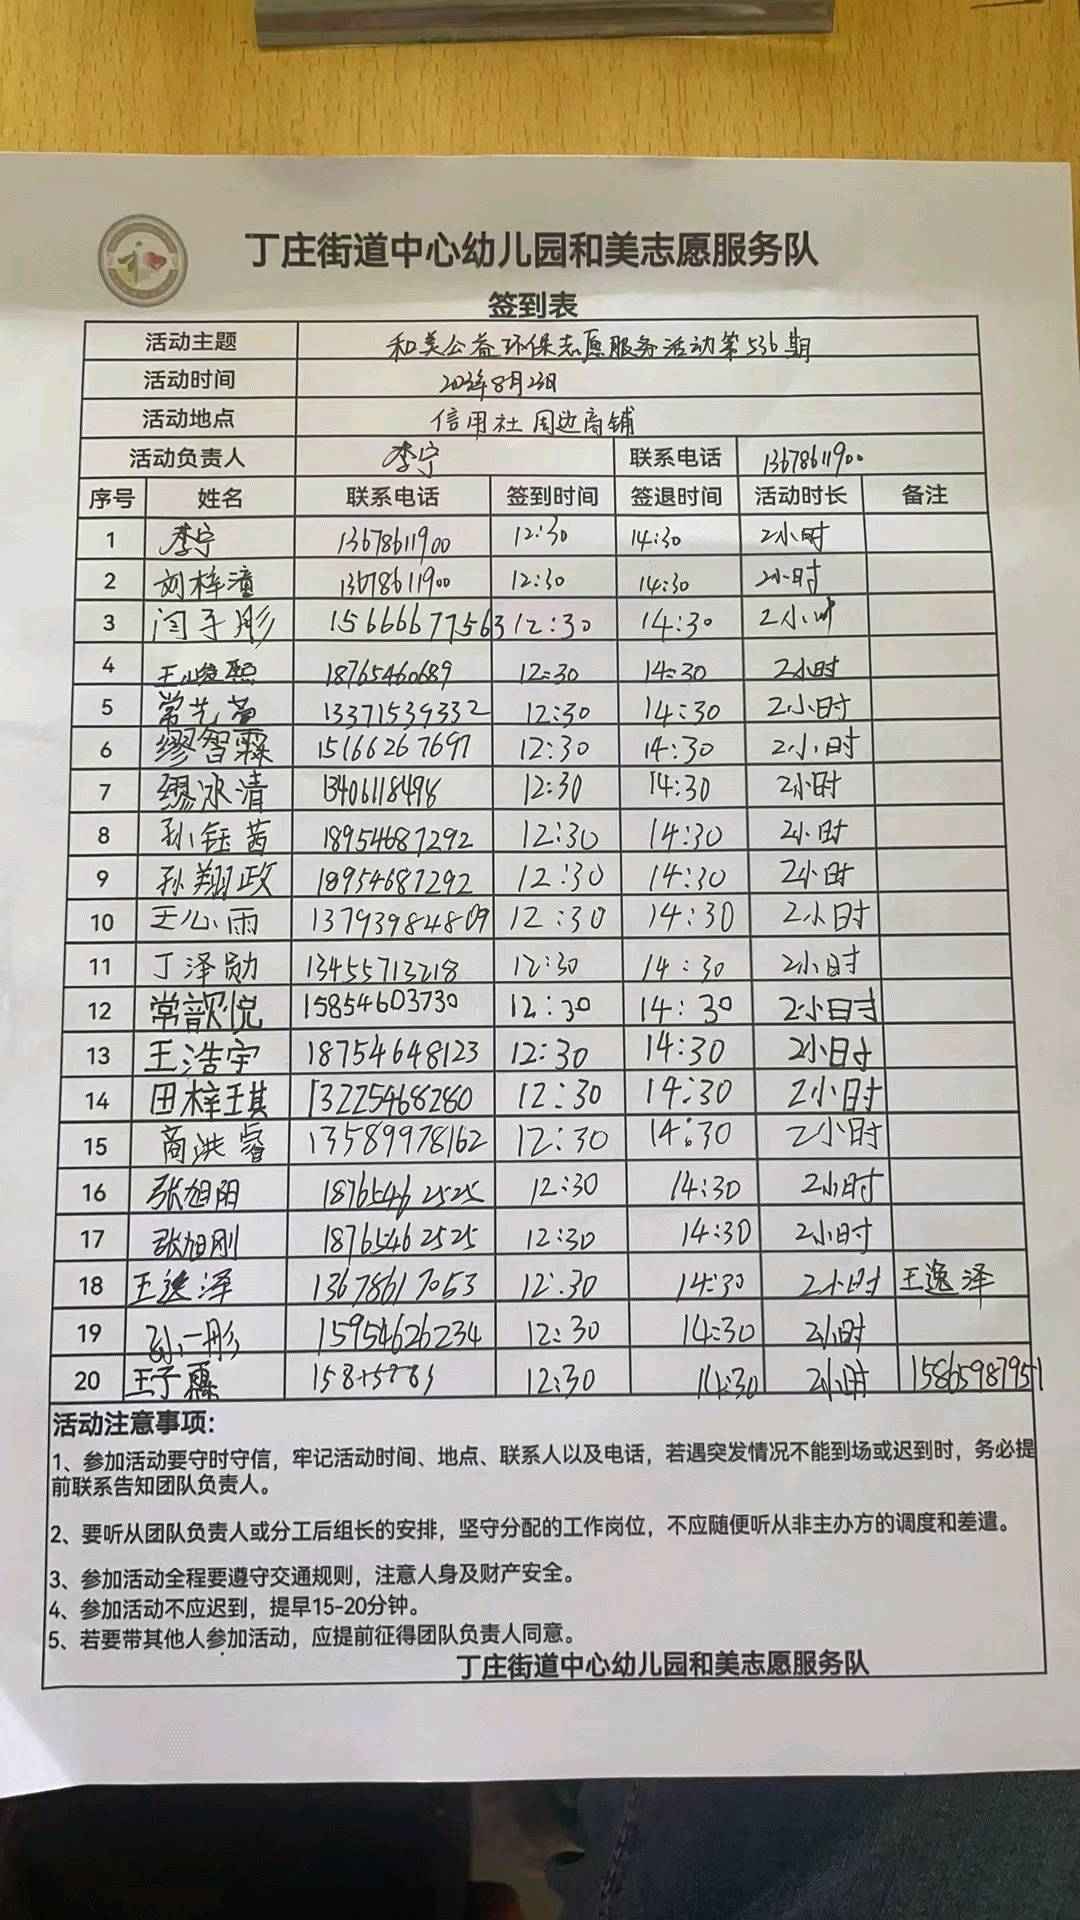 丁庄街道中心幼儿园和美志愿服务队
签到表
活动主题 和美公益环保志愿服务活动第536期
活动时间 2023年8月23日
活动地点 信用社周边商铺
活动负责人 李宁 联系电话 13678611900
序号 姓名 联系电话 签到时间 签退时间 活动时长 备注
1 李宁 13678611900 12:30 14:30 2小时
2 刘梓潼 13678611900 12:30 14:30 2小时
3 闫子彤 15666677563 12:30 14:30 2小时
4 王峻熙 18765460689 12:30 14:30 2小时
5 常艺萱 13371539332 12:30 14:30 2小时
6 缪智霖 15166267697 12:30 14:30 2小时
7 缪冰清 13406118498 12:30 14:30 2小时
8 孙钰茜 18954687292 12:30 14:30 2小时
9 孙翔政 18954687292 12:30 14:30 2小时
10 王心雨 13793984809 12:30 14:30 2小时
11 丁泽勋 13455713218 12:30 14:30 2小时
12 常歆悦 15854603730 12:30 14:30 2小时
13 王浩宇 18754648123 12:30 14:30 2小时
14 田梓琪 13225468280 12:30 14:30 2小时
15 商洪睿 13589978162 12:30 14:30 2小时
16 张旭阳 18765462525 12:30 14:30 2小时
17 张旭刚 18765462525 12:30 14:30 2小时
18 王逸泽 13678617053 12:30 14:30 2小时 王逸泽
19 孙一彤 15954626234 12:30 14:30 2小时
20 王子霖 12:30 14:30 2小时 15865987951
活动注意事项:
1、参加活动要守时守信，牢记活动时间、地点、联系人以及电话，若遇突发情况不能到场或迟到时，务必提
前联系告知团队负责人。
2、要听从团队负责人或分工后组长的安排，坚守分配的工作岗位，不应随便听从非主办方的调度和差遣。
3、参加活动全程要遵守交通规则，注意人身及财产安全。
4、参加活动不应迟到，提早15-20分钟。
5、若要带其他人参加活动，应提前征得团队负责人同意。
丁庄街道中心幼儿园和美志愿服务队